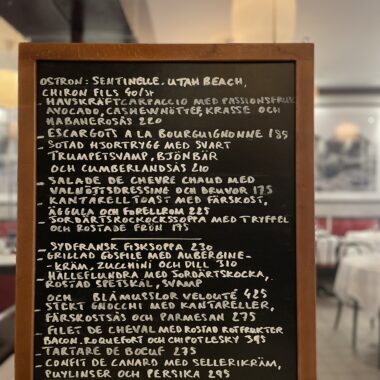 OSTRON: SENTINELLE. UTAH BEACH,
CHIRON FILS 40/ST
- HAVSKRÄFTCARPACCIO MED PASSIONSFRUKT
AVOCADO, CASHEWNÖTTER, KRASSE OCH
HABANEROSÅS 220
- ESCARGOTS A LA BOURGUIGNONNE 185
- SOTAD HJORTRYGG MED SVART
TRUMPETSVAMP, BJÖNBÄR
OCH CUMBERLANDSÅS 210
- SALADE DE CHEVRE CHAUD MED
VALNÖTSDRESSING OCH DRUVOR 175
- KANTARELLTOAST MED FÄRSKOST,
ÄGGULA OCH FORELLROM 225
- JORDÄRTSKOCKSSOPPA MED TRYFFEL
OCH ROSTADE FRÖN 175
- SYDFRANSK FISKSOPPA 230
- GRILLAD GÖSFILE MED AUBERGINE-
KRÄM, ZUCCHINI OCH DILL 310
- HÄLLEFLUNDRA MED JORDÄRTSKOCKA,
ROSTAD SPETSKÅL, SVAMP
OCH BLÅMUSSLOR VELOUTÉ 425
- STEKT GNOCCHI MED KANTARELLER,
FÄRSKOSTSÅS OCH PARMESAN 275
- FILET DE CHEVAL MED ROSTAD ROTFRUKTER
BACON, ROQUEFORT OCH CHIPOTLESKY 395
- TARTARE DE BOEUF 275
- CONFIT DE CANARD MED SELLERIKRÄM,
PUYLINSER OCH PERSIKA 295